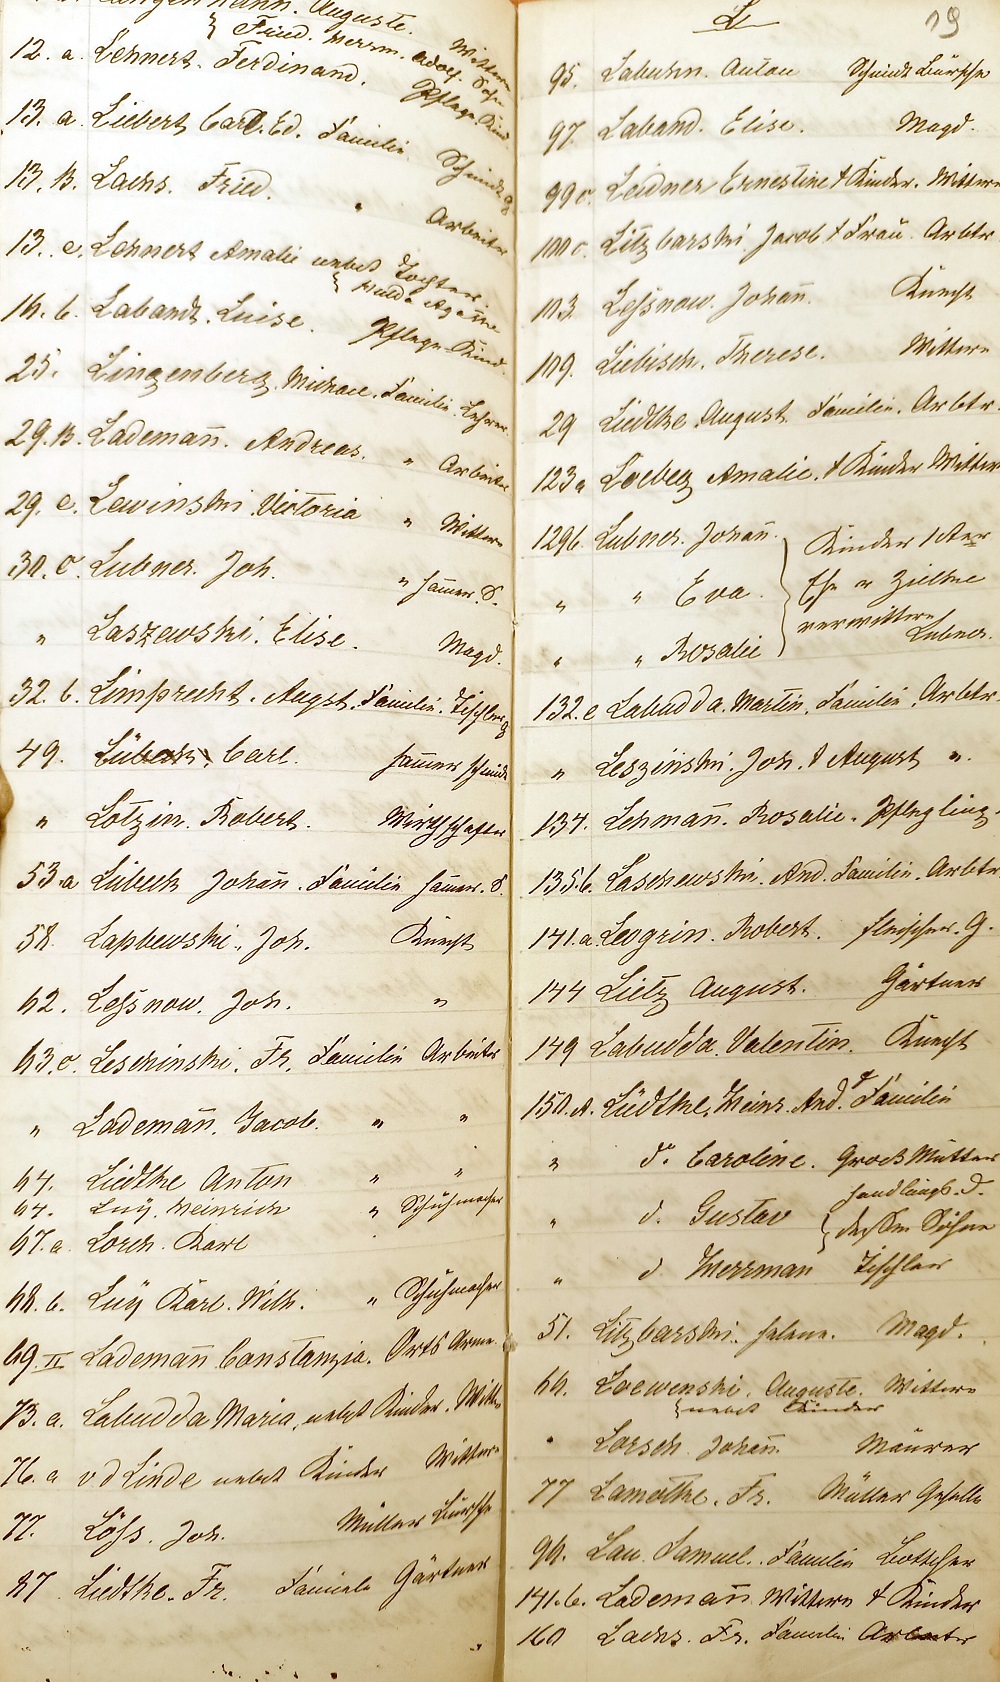 Langenhann. Auguste. Wittwe
Fried. Herrm. Adolf. Sohn
12. a. Lehnert. Ferdinand. Pflege Kind
13. a Liebert Carl. Ed. Familie Schmidt
13. B. Lachs. Fried. " Arbeiter
13. c. Lehnert Amalie nebst Tochter.
Hulda Agathe
16. b. Labandt. Luise. Pflege Kind.
25. Lingenberg. Michael. Familie. Lehrer
29. B. Lademañ. Andreas. " Arbeiter
29. c. Lewinski. Victoria " Wittwe
30. c. Lubner. Joh. " Hamer. S.
" Laszewski. Elise. Magd.
32. b. Limprecht. Augst. Familie. Tischler
49. Lübeck. Carl. Hamer schmidt
" Lotzin. Robert. Wirthschafter
53. a Lübeck Johañ. Familie Hamer. S.
58. Joh. Knecht
62. Leßnow. Joh. "
63. c. Leschinski. Fr. Familie Arbeiter
" Lademañ. Jacob. " "
64. Liedtke Anton " "
64. Luÿ. Heinrich " Schuhmacher
67. a Lorch. Karl
68. b. Luÿ Karl. Wilh. " Schuhmacher
69. II Lademañ Constanzia. Orts Arme.
73. a. Labudda Maria, nebst Kinder. Wittwe
76. a v d Linde nebst Kinder Wittwe
77. Löß. Joh. Müller Bursche
87 Liedtke. Fr. Familie Gärtner
L 19
95. Labuhn. Anton Schmidt Bursche
97. Laband. Elise. Magd.
99 c. Leidner Ernestine & Kinder. Wittwe
100 c. Litzbarski. Jacob & Frau. Arbtr.
103. Leßnow. Johañ. Knecht
109. Liebisch. Therese. Wittwe
29 Liedtke August. Familie. Arbtr.
123 a Amalie. & Kinder Wittwe
129 b. Lubner. Johañ. Kinder 1ster
" " Eva. Ehe
verwittwe
" " Rosalie Lubner.
132. c Labudda. Martin. Familie. Arbtr.
" Leszinski. Joh. & August ".
134. Lehmañ. Rosalie. Pflegling.
135. b. Laschewski. And. Familie. Arbtr.
141. a. Levgrin. Robert. Fleischer. G.
144 Lietz August. Gärtner
149 Labudda. Valentin. Knecht
150. A. Lüdtke. Heinr. And. & Familie
" d. Caroline. Groß Mutter
" d. Gustav Handlungs. D.
dessen Söhne
" d Herrman Tischler
51. Litzbarski. Helene. Magd.
60. Loewenski. Auguste. Wittwe
nebst Kinder
" Lorsch. Johañ. Maurer
77 Lamothe. Fr. Müller Geselle
90. Lau. Samuel. Familie Böttcher
141. b. Lademañ Wittwe & Kinder
160 Lachs. Fr. Familie Arbeiter